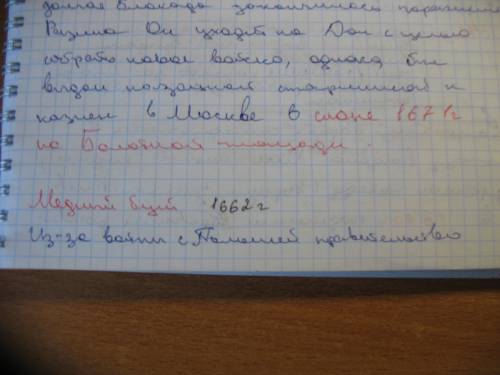 долгая блокада закончилась поражением
Разина Он уходит на Дон с целью
собрать новое войско, однако был
выдан казацкой старшиной и
казнен в Москве в июне 1671г
на Болотной площади.
Медный бунт 1662 г
Из-за войны с Польшей правительство